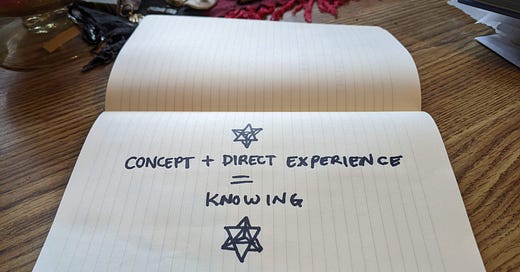 CONCEPT + DIRECT EXPERIENCE
=
KNOWING